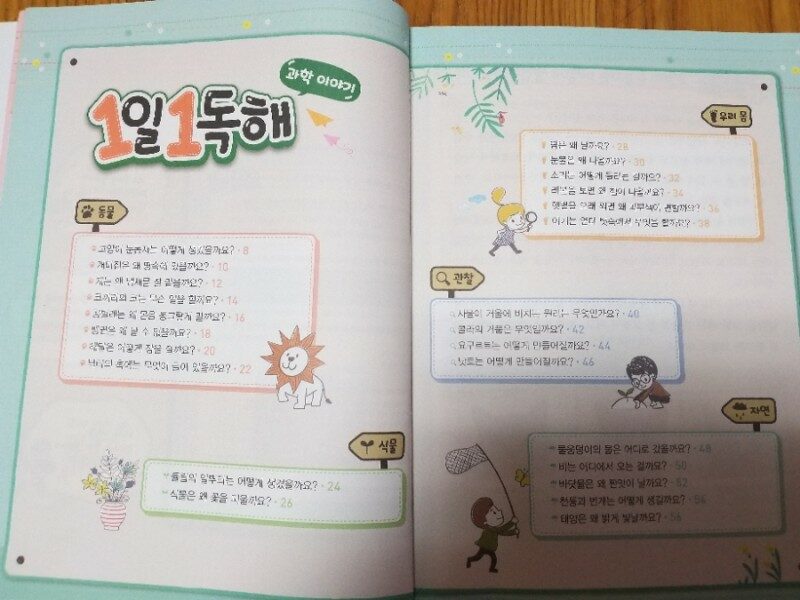 과학 이야기
1일1독해
동물
고양이 눈동자는 어떻게 생겼을까요? · 8
개미집은 왜 땅속에 있을까요? · 10
개는 왜 냄새를 잘 맡을까요? · 12
코끼리의 코는 무슨 일을 할까요? · 14
왜 몸을 동그랗게 말까요? · 16
왜 날 수 있을까요? · 18
어떻게 잠을 잘까요? · 20
속에는 무엇이 들어 있을까요? · 22
식물
튤립의 알뿌리는 어떻게 생겼을까요? · 24
식물은 왜 꽃을 피울까요? · 26
우리 몸
땀은 왜 날까요? · 28
눈물은 왜 나올까요? · 30
소리는 어떻게 들리는 걸까요? · 32
레몬을 보면 왜 침이 나올까요? · 34
햇볕을 오래 쬐면 왜 변할까요? · 36
아기는 엄마 뱃속에서 무엇을 할까요? · 38
관찰
사물이 거울에 비치는 원리는 무엇인가요? · 40
콜라의 거품은 무엇일까요? · 42
요구르트는 어떻게 만들어질까요? · 44
낫토는 어떻게 만들어질까요? · 46
자연
물웅덩이의 물은 어디로 갔을까요? · 48
비는 어디에서 오는 걸까요? · 50
바닷물은 왜 짠맛이 날까요? · 52
천둥과 번개는 어떻게 생길까요? · 54
태양은 왜 밝게 빛날까요? · 56